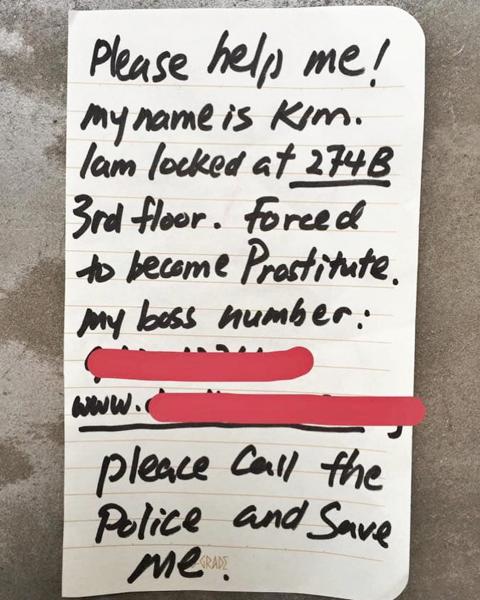 Please help me!
my name is Kim.
I am locked at 274B
3rd floor. Forced
to become Prostitute.
my boss number:
www.
please call the
Police and Save
me.
GRADE